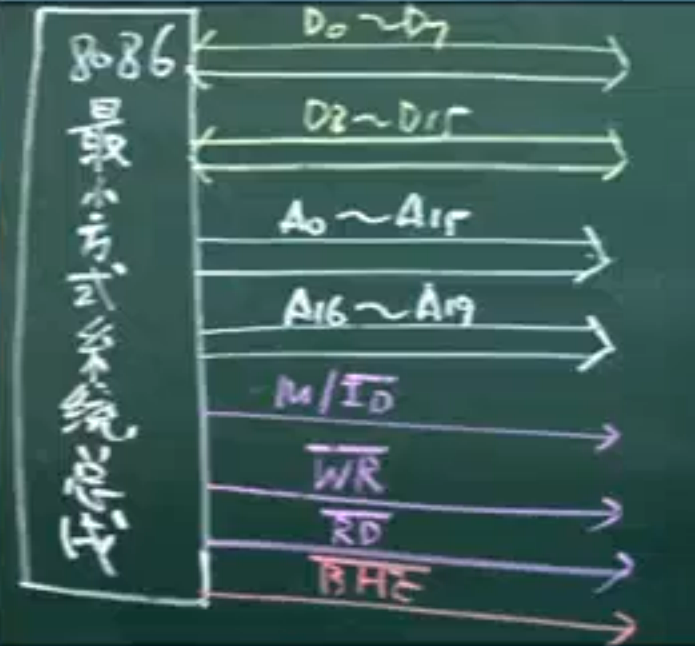 8086
最小方式系统总线
D0~D7
D8~D15
A0~A15
A16~A19
M/I̅O̅
W̅R̅
R̅D̅
B̅H̅E̅